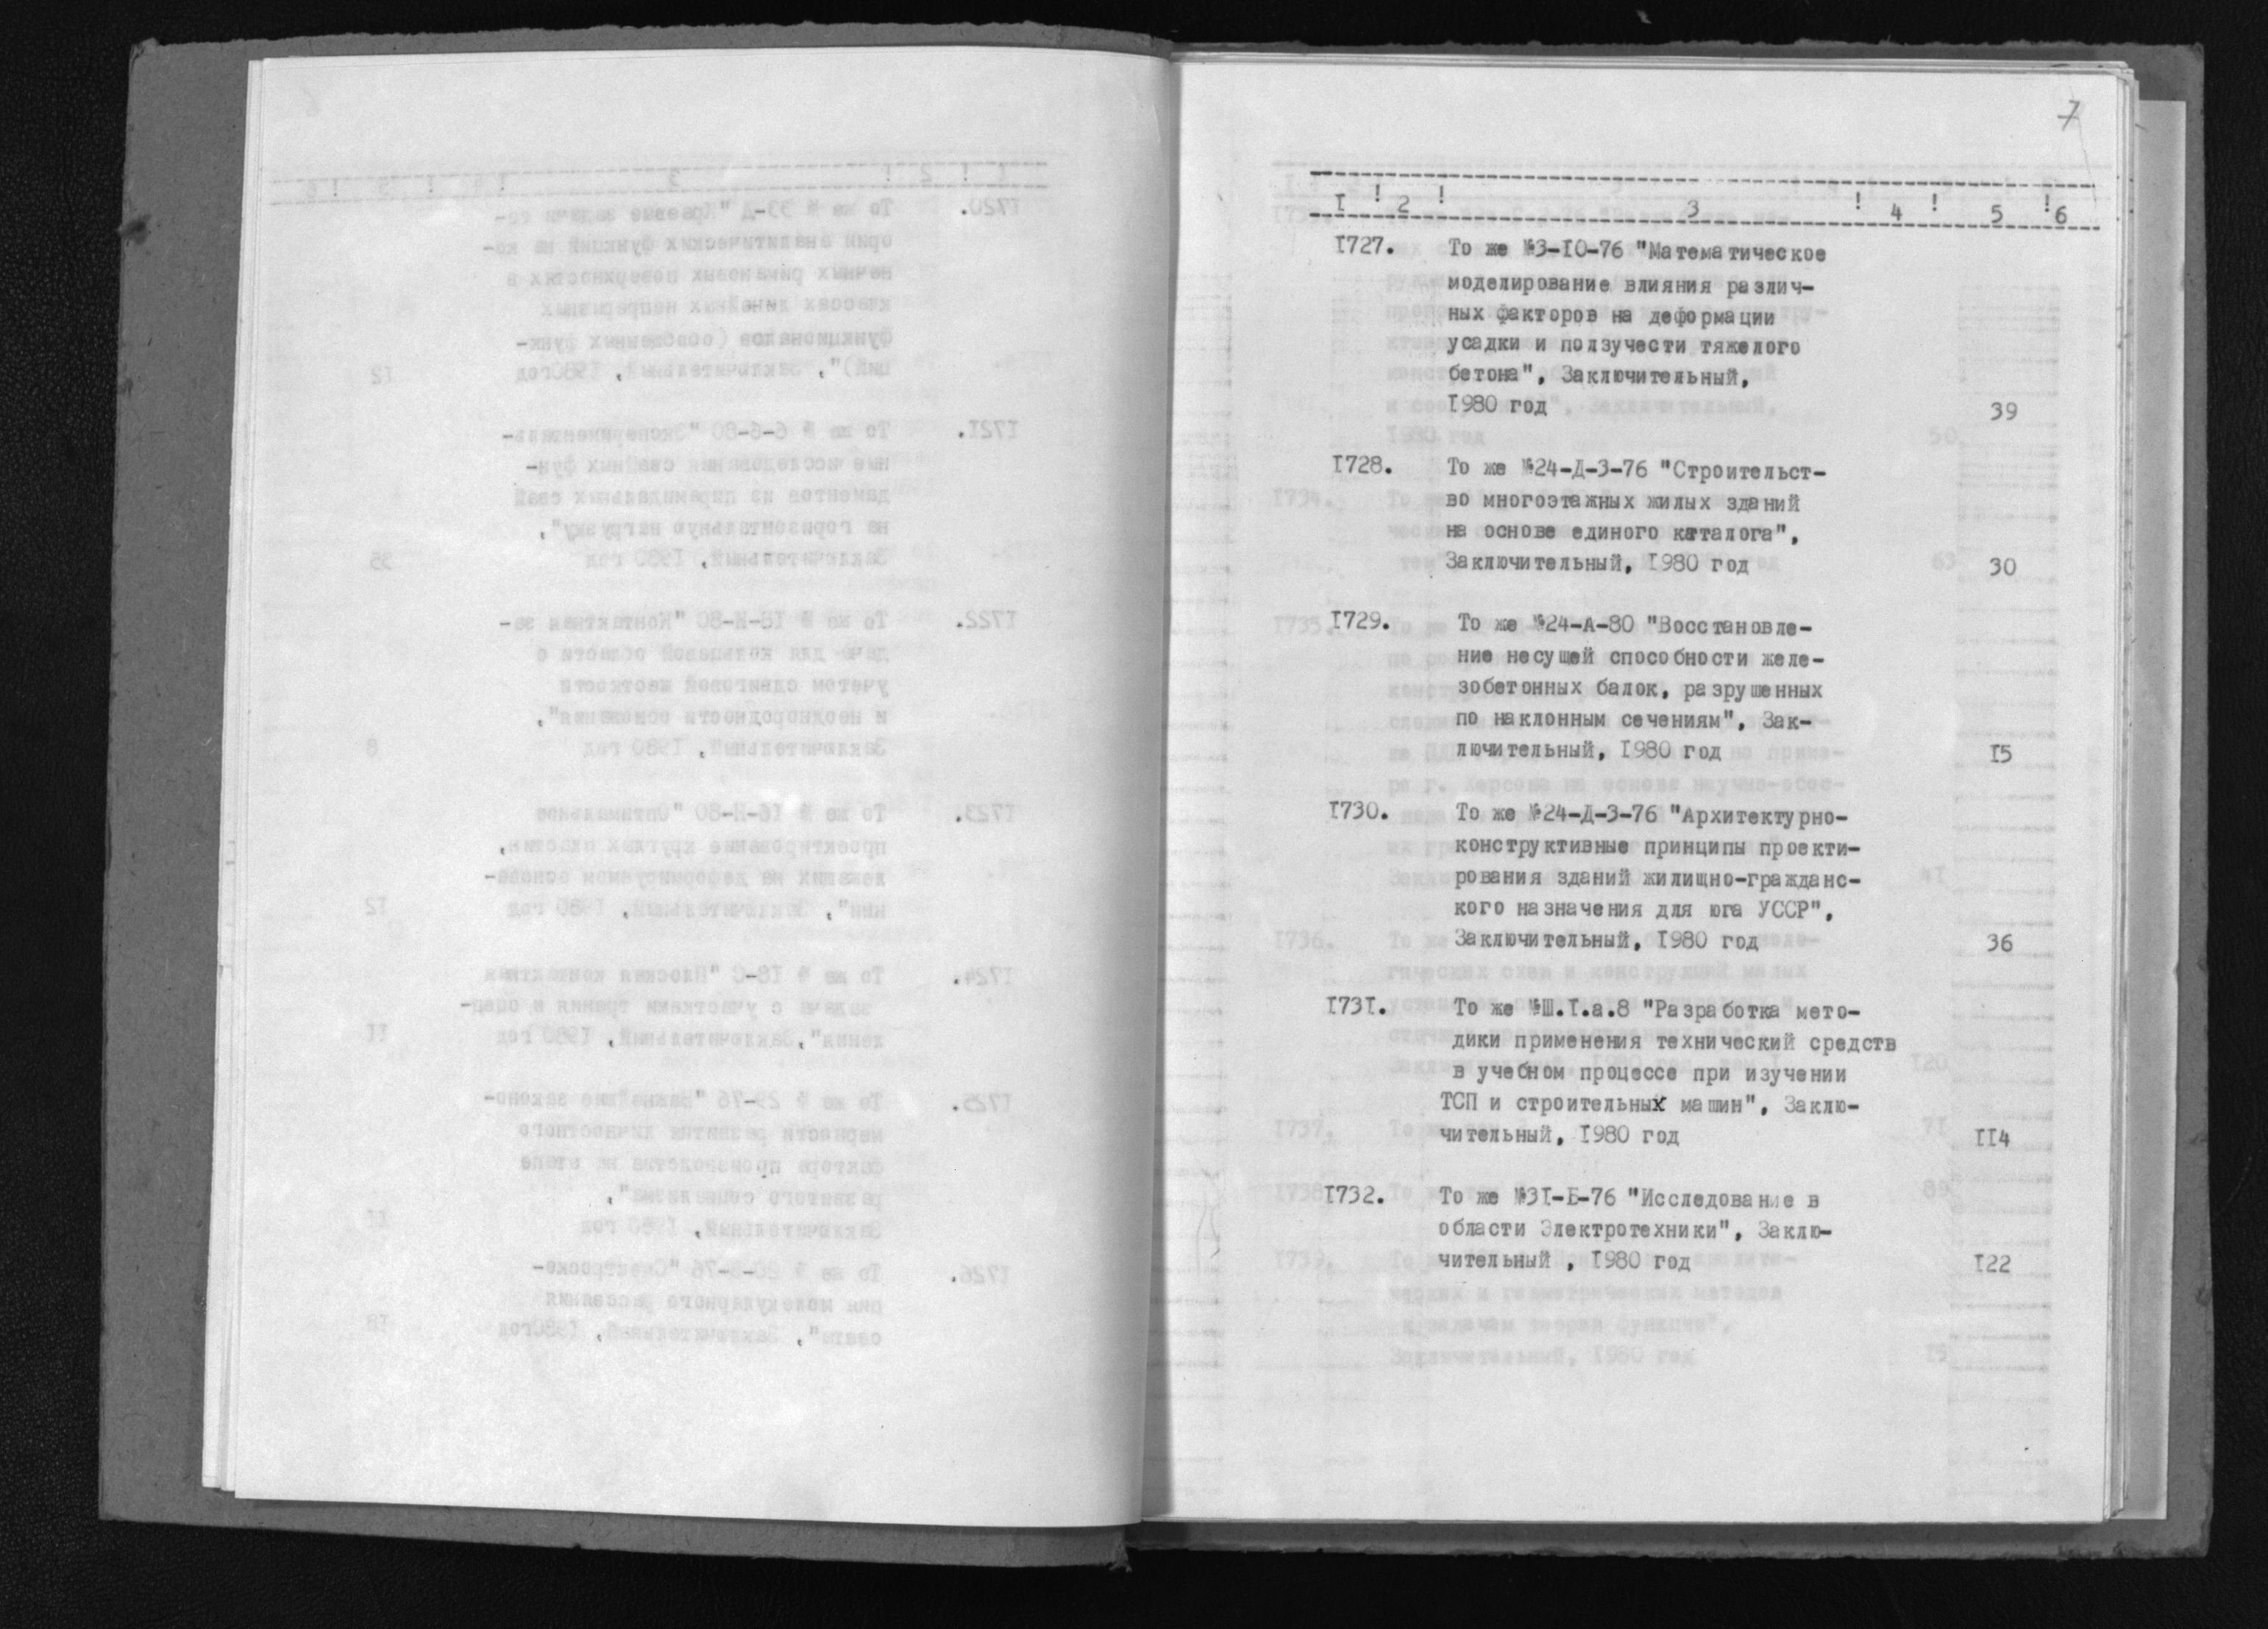 7
I ! 2 ! 3 ! 4 ! 5 ! 6
I727. То же №3-I0-76 "Математическое
моделирование влияния различ-
ных факторов на деформации
усадки и ползучести тяжелого
бетона", Заключительный,
I980 год 39
I728. То же №24-Д-3-76 "Строительст-
во многоэтажных жилых зданий
на основе единого каталога",
Заключительный, I980 год 30
I729. То же №24-А-80 "Восстановле-
ние несущей способности желе-
зобетонных балок, разрушенных
по наклонным сечениям", Зак-
лючительный, I980 год I5
I730. То же №24-Д-3-76 "Архитектурно-
конструктивные принципы проекти-
рования зданий жилищно-гражданс-
кого назначения для юга УССР",
Заключительный, I980 год 36
I73I. То же №Ш.I.а.8 "Разработка мето-
дики применения технический средств
в учебном процессе при изучении
ТСП и строительных машин", Заклю-
чительный, I980 год II4
I732. То же №3I-Б-76 "Исследование в
области Электротехники", Заклю-
чительный , I980 год I22